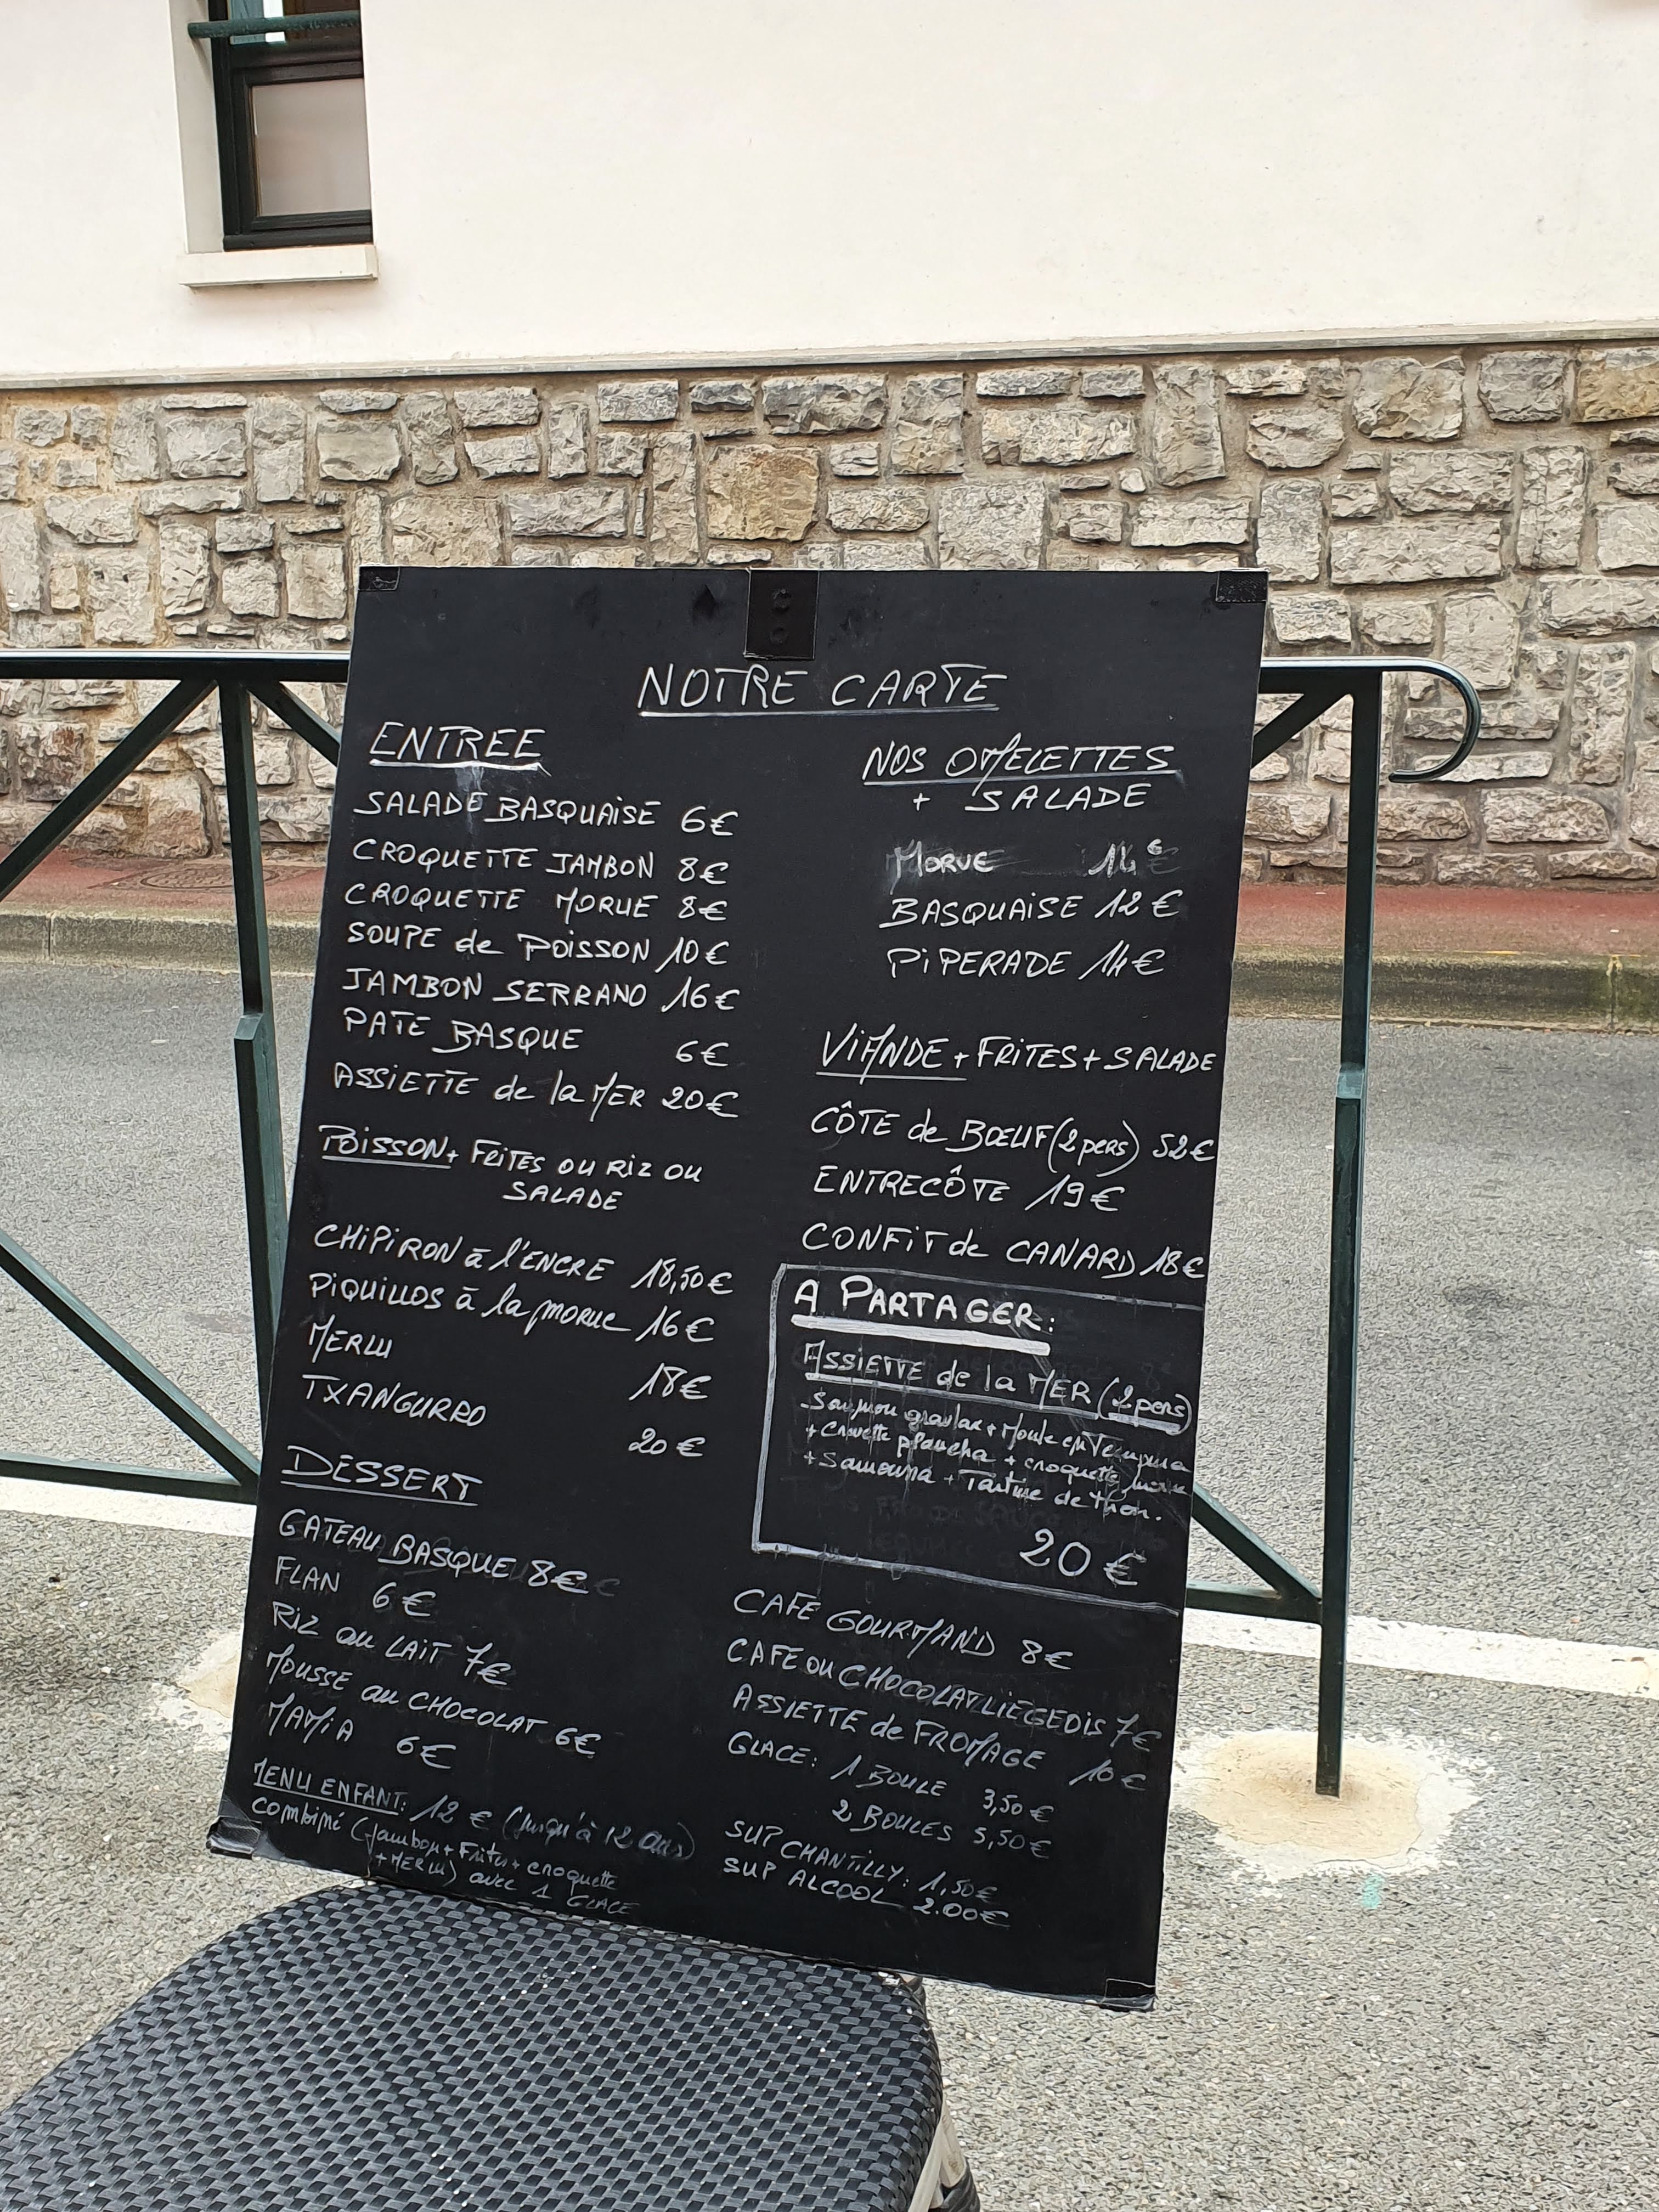 NOTRE CARTE
ENTREE
SALADE BASQUAISE 6€
CROQUETTE JAMBON 8€
CROQUETTE MORUE 8€
SOUPE de POISSON 10€
JAMBON SERRANO 16€
PATE BASQUE 6€
ASSIETTE de la MER 20€
POISSON + FRITES OU RIZ OU
SALADE
CHIPIRON à l'ENCRE 18,50€
PIQUILLOS à la morue 16€
MERLU 18€
TXANGURRO 20€
DESSERT
GATEAU BASQUE 8€
FLAN 6€
RIZ au LAIT 7€
MOUSSE au CHOCOLAT 6€
MAMIA 6€
MENU ENFANT: 12€ (jusqu'à 12 ans)
combiné (jambon + Frites + croquette
+ MERLU) avec 1 GLACE
NOS OMELETTES
+ SALADE
MORUE 14€
BASQUAISE 12€
PIPERADE 14€
VIANDE + FRITES + SALADE
CÔTE de BŒUF (2 pers) 52€
ENTRECÔTE 19€
CONFIT de CANARD 18€
A PARTAGER:
ASSIETTE de la MER (2 pers)
Saumon gravlax + Moule en Tempura
+ Crevette plancha + croquette morue
+ Samoussa + Tartine de thon.
20€
CAFE GOURMAND 8€
CAFE OU CHOCOLAT LIEGEOIS 7€
ASSIETTE de FROMAGE 10€
GLACE: 1 BOULE 3,50€
2 BOULES 5,50€
SUP CHANTILLY: 1,50€
SUP ALCOOL 2.00€